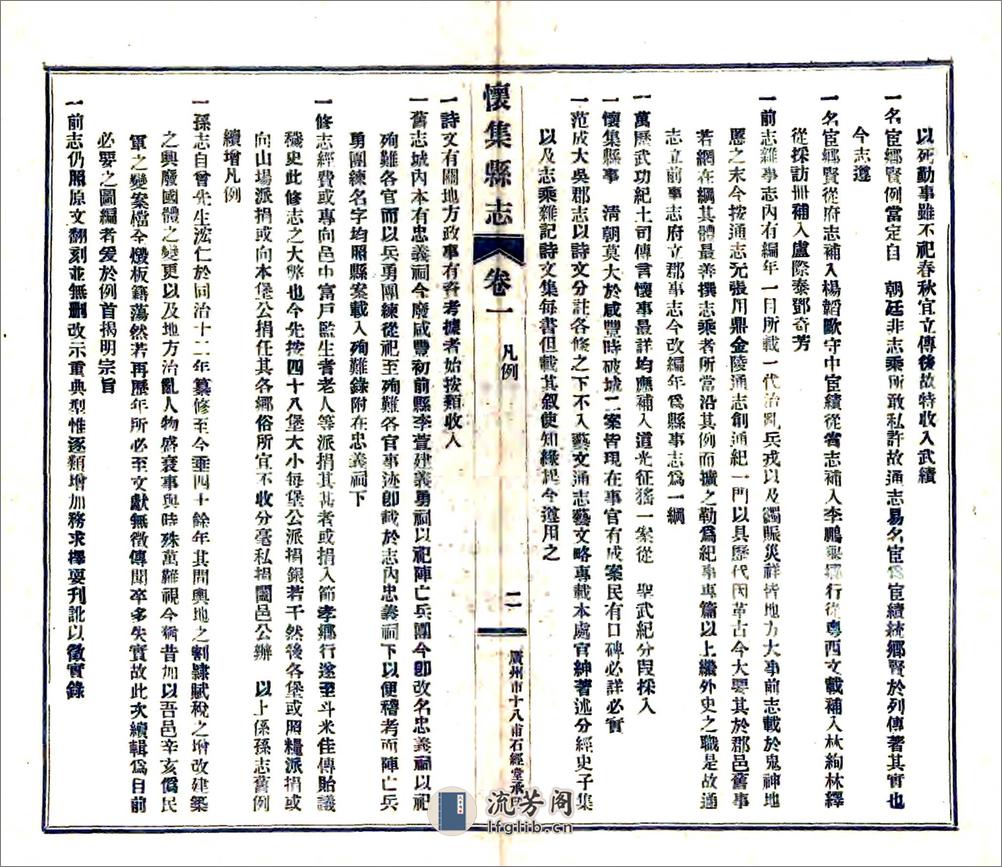 以死勤事雖不祀春秋宜立傳後故特收入武績
一名宦鄉賢例當定自　朝廷非志乘所敢私許故通志易名宦爲宦績統鄉賢於列傳著其實也
今志遵
一名宦鄉賢從府志補入楊韜歐守中宦績從省志補入李鵬舉鄉行從粵西文載補入林絢林繹
從採訪冊補入盧際泰鄧奇芳
一前志雜事志內有編年一目所載一代治亂兵戎以及蠲賑災祥皆地方大事前志載於鬼神地
應之末今按通志沅張用鼎金陵通志創通紀一門以具歷代因革古今大要其於郡邑舊事
若網在綱其體最善撰志乘者所當沿其例而擴之勒爲紀事專篇以上繼外史之職是故通
志立前事志府立郡事志今改編年爲縣事志爲一綱
一萬歷武功紀土司傳言懷事最詳均應補入道光征猺一案從　聖武紀分段採入
一懷集縣事　清朝莫大於咸豐時破城二案皆現在事官有成案民有口碑必詳必實
一范成大吳郡志以詩文分註各條之下不入藝文通志藝文略專載本處官紳著述分經史子集
以及志乘雜記詩文集每書但載其叙使知緣起今遵用之
懷集縣志　卷一　凡例　二　廣州市十八甫石經堂承
一詩文有關地方政事有資考據者始按類收入
一舊志城內本有忠義祠今廢咸豐初前縣李萱建義勇祠以祀陣亡兵團今卽改名忠義祠以祀
殉難各官而以兵勇團練從祀至殉難各官事迹卽載於志內忠義祠下以便稽考而陣亡兵
勇團練名字均照縣案載入殉難錄附在忠義祠下
一修志經費或專向邑中富戶監生耆老人等派捐其甚者或捐入節孝鄉行遂至斗米佳傳貽議
穢史此修志之大弊也今先按四十八堡大小每堡公派捐銀若干然後各堡或照糧派捐或
向山場派捐或向本堡公捐任其各鄉俗所宜不收分毫私捐闔邑公辦　以上係孫志舊例
續增凡例
一孫志自曾先生浤仁於同治十二年纂修至今垂四十餘年其間輿地之割隸賦稅之增改建築
之興廢國體之變更以及地方治亂人物盛衰事與時殊萬難視今猶昔加以吾邑辛亥僞民
軍之變案檔全燬板籍蕩然若再歷年所必至文獻無徵傳聞卒多失實故此次續輯爲目前
必要之圖編者爰於例首揭明宗旨
一前志仍照原文翻刻並無刪改示重典型惟逐類增加務求擇要刊訛以徵實錄
流芳閣
lfglib.cn